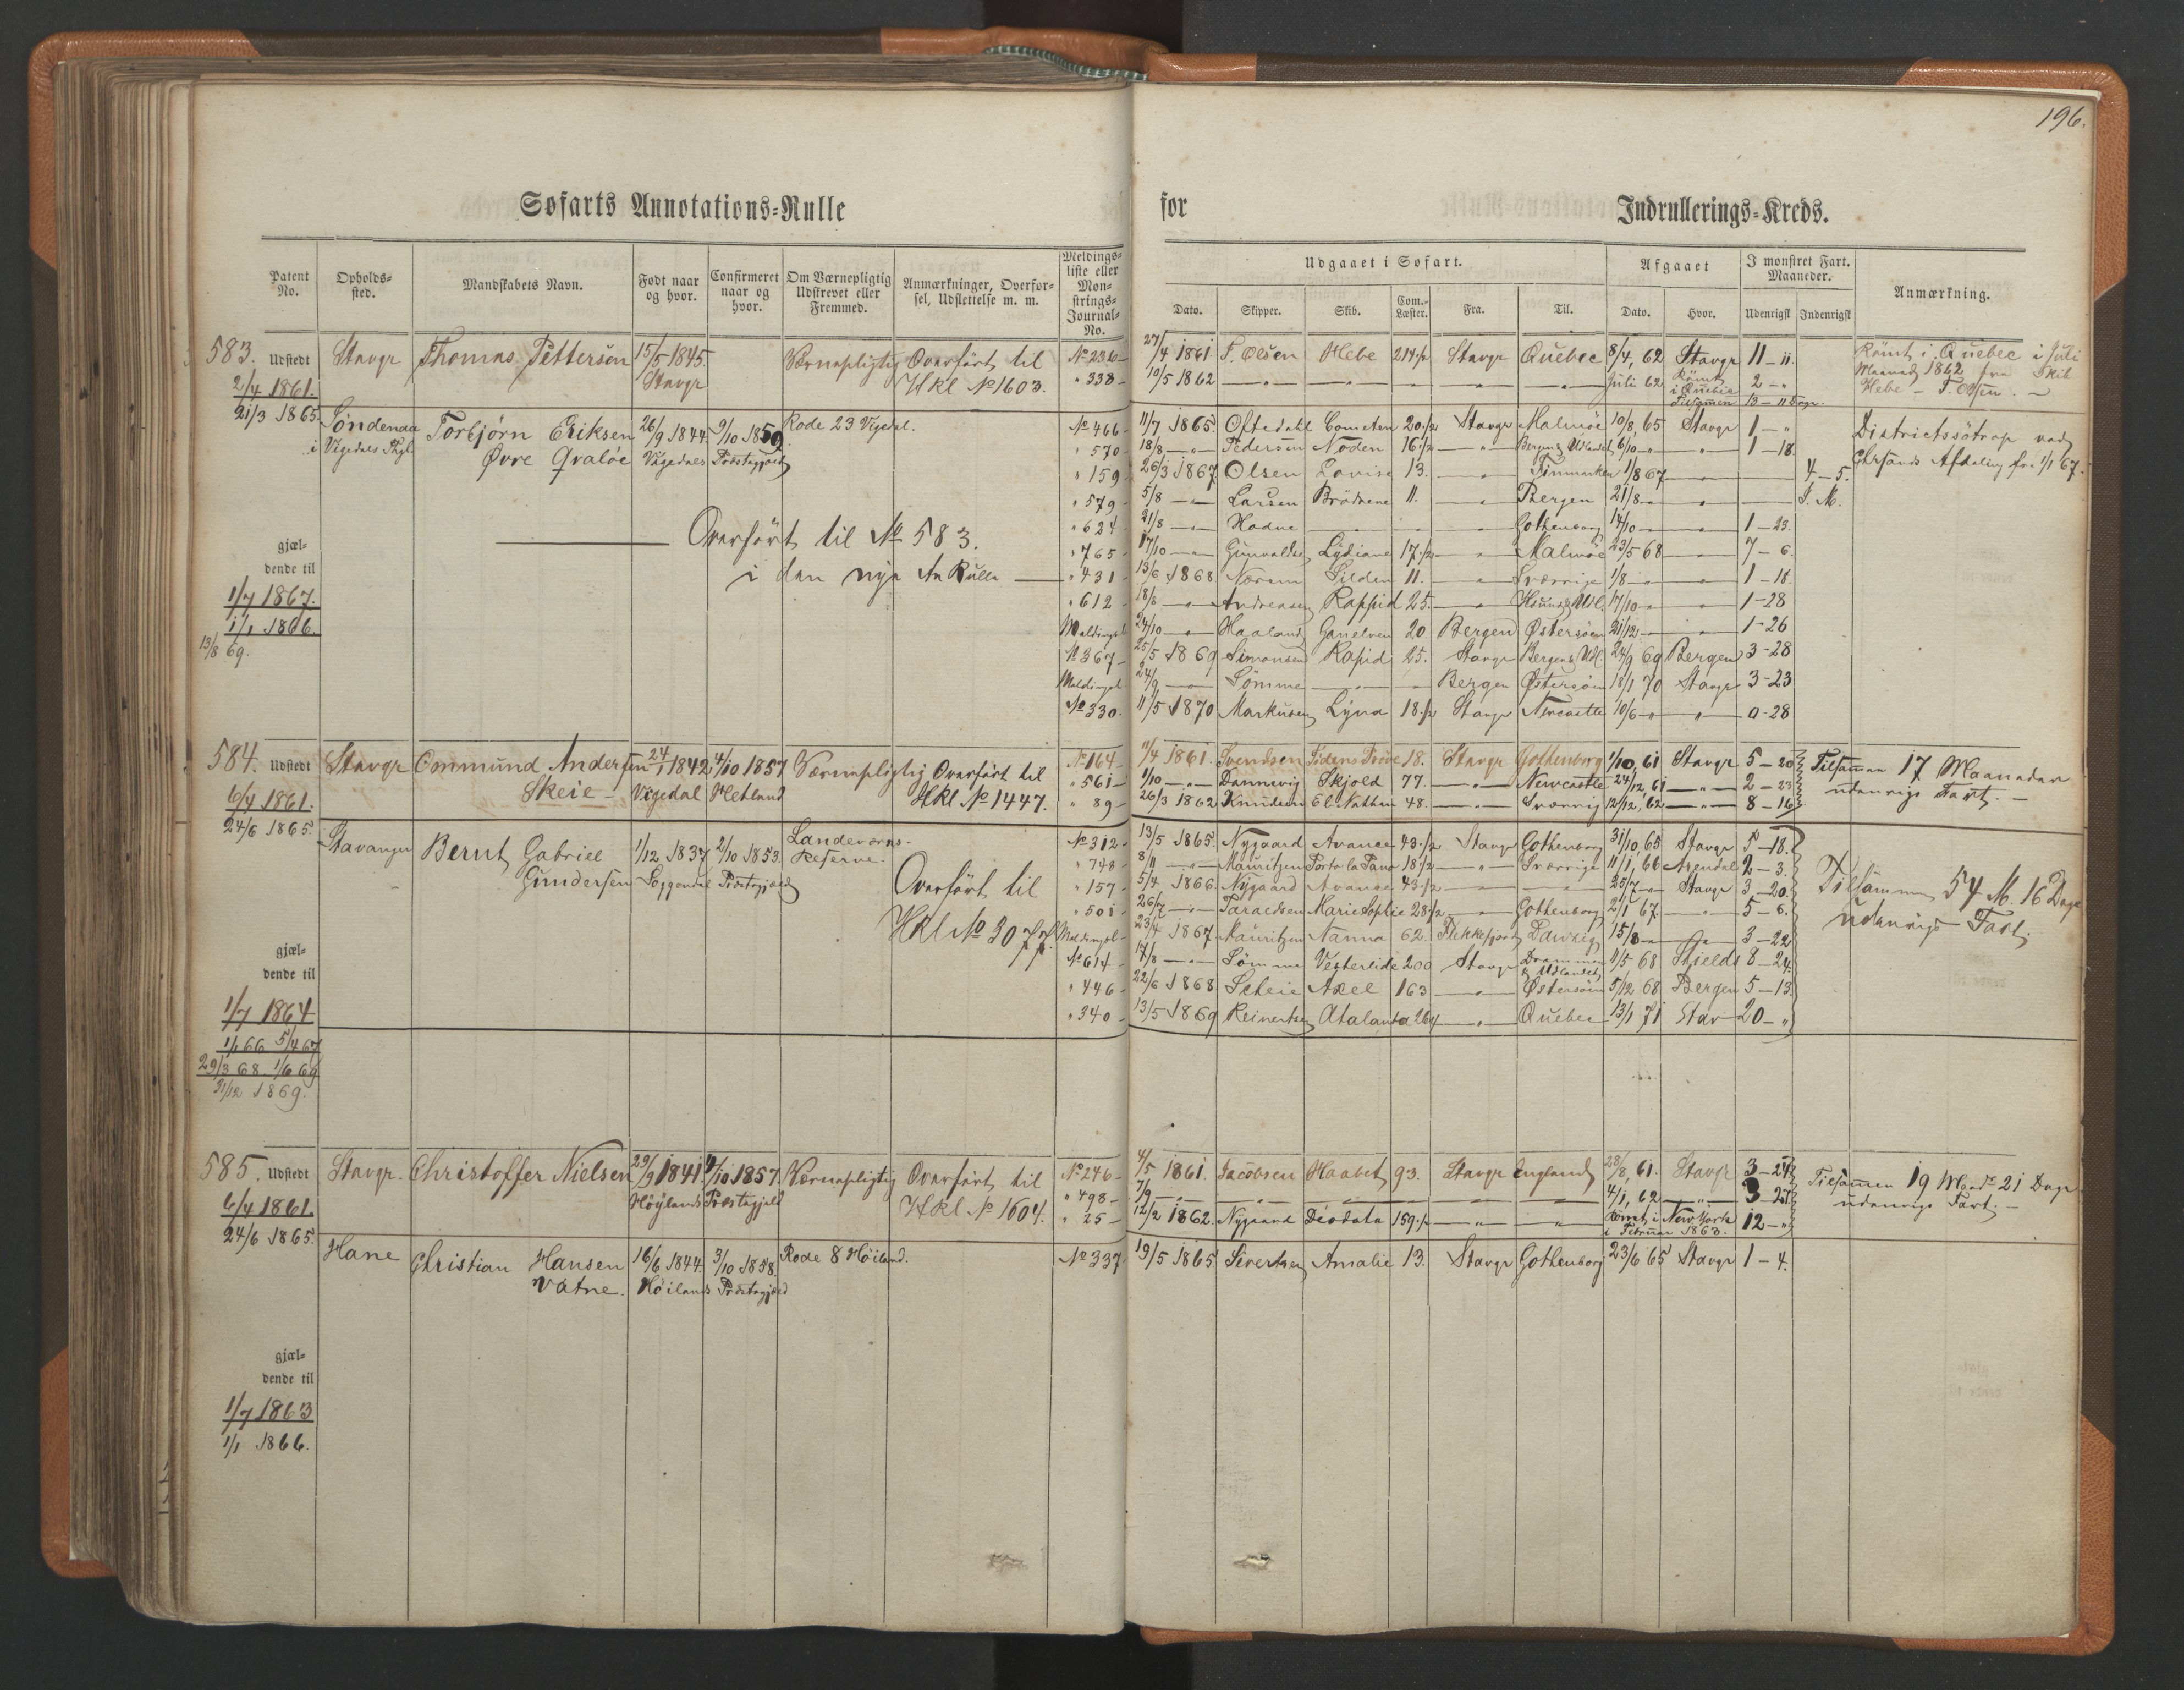 196.
Søfarts Annotations-Rulle for Indrullerings-Kreds.
Patent No.
Opholds-sted.
Mandskabets Navn.
Født naar og hvor.
Confirmeret naar og hvor.
Om Værnepligtig Udskrevet eller Fremmed.
Anmærkninger, Overførsel, Udslettelse m. m.
Meldings-liste eller Mon-strings-Journal-No.
Udgaaet i Søfart.
Dato. Skipper. Skib. Com.-Læster. Fra. Til.
Afgaaet
Dato. Hvor.
I mønstret Fart. Maaneder.
Udenrigsk Indenrigsk
Anmærkning.
583. Udstedt Stavgr Thomas Pettersen 15/5 1845. Værnepligtig Overført til No 236 27/4 1861. T. Olsen Hebe 214 1/2 Stavgr Quebec 8/4, 62 Stavgr 11 - 11. Römt i Quebec i Juli
2/4 1861. Stavgr HKl No 1603. " 338 10/5 1862 — " — Juli 62 Römt i Quebec 2 - " Maaned 1862 fra Skib
Tilsammen 13 - 11 Dage. Hebe - T. Olsen. -
21/3 1865. Söndenaa Torbjörn Eriksen 26/9 1844. 9/10 1859. Rode 23 Vigedal. No 466 11/7 1865. Oftedahl Cometen 20 1/2 Stavgr Malmöe 10/8, 65 Stavgr 1 - " Districtssötrop ved
i Vigedals Övre Qvaløe Vigedals Præstegjæld " 570 18/8 — " — Pedersen Noden 16 1/2 " Bergen & Udlandet 6/10 " " 1 - 18. Chrsands Afdeling fra 1/1 67.
" 159 26/3 1867 Olsen Lovise 13. " Finmarken 1/8 67 4 - 5.
" 579 5/8 — Larsen Brödrene 11. " Bergen 21/8 " I. M.
Overført til No 583. " 624 21/8 — Hodne — Gothenborg 14/10 " " 1 - 23.
gjæl-
dende til
" 765 17/10 — Gunvaldsen Lydiane 17 1/2 " Malmöe 23/5 68 " 7 - 6.
i den nye An Rulle " 431 13/6 1868 Næsem Silden 11. " Sverrige 1/8 " " 1 - 18.
1/7 1867. " 612 18/8 — Andreasen Rappid 25. " 17/10 " " 1 - 28
1/1 1866. 24/10 — Haaland Ganelven 20. Bergen Østersøen 21/12 " " 1 - 26
13/8 69. No 367 25/5 1869 Simonsen Rapid 25. Stavgr Bergen & Udl. 24/9 69 Bergen 3 - 28
24/9 — Sömme — Bergen Østersøen 18/1 70 Stavgr 3 - 23
No 330. 11/5 1870 Markusen Lyna 18 1/2 Stavgr Newcastle 10/6 " " 0 - 28
584. Udstedt Stavgr Ommund Andersen 24/1 1842 4/10 1857 Værnepligtig Overført til No 164 11/4 1861. Svendsen Tidens Pröve 18. Stavgr Gothenborg 1/10, 61 Stavgr 5 - 20 Tilsammen 17 Maaneder
6/4 1861. Skeie Vigedal Hetland HKl No 1447. " 561 1/10 — Dannevig Skjold 77. " Newcastle 24/12, 61 " 2 - 23 udenrigs Fart. -
" 89 26/3 1862 Knudsen El. Nathan 48. " Sverrig 12/12, 62 " 8 - 16
24/6 1865. Stavanger Bernt Gabriel 1/12 1837 2/10 1853. Landeværns-Reserve. No 312 13/5 1865. Nygaard Avance 43 1/2 Stavgr Gothenborg 31/10, 65 Stavgr 5 - 18.
Gundersen Soggendal Præstegjæld Overført til " 748 8/11 — Mauritzen 18 1/2 " Sverrige 11/1, 66 Arendal 2 - 3.
HKl No 3077. " 157 5/4 1866. Nygaard Avance 43 1/2 — 25/7 " Stavgr 3 - 20. Tilsammen 54 M. 16 Dage
" 501 26/7 — Taraldsen Marie Sophie 28 1/2 " Gothenborg 2/1 67. " 5 - 6. udenrigs Fart.
23/4 1867. Mauritzen Nanna 62. Flekkefjord Danzig 15/8 " 3 - 22
gjæl-
dende til
No 614 17/8 — Sömme Vesterlide 200 Stavgr Drammen & Udlandet 11/5 68 Shields 8 - 24.
1/7 1864 " 446 22/6 1868 Scheie Axel 163 " Østersøen 5/12 68 Bergen 5 - 13.
1/1 66 5/4 67 " 340 13/5 1869 Reinertsen Atalanta 264 " Quebec 13/1 71 Stav 20 - "
29/3 68. 1/6 69
31/12 1869.
585. Udstedt Stavgr. Christoffer Nielsen 29/9 1841. 4/10 1857. Værnepligtig Overført til No 246 4/5 1861. Jacobsen Haabet 93. Stavgr England 28/8, 61. Stavgr 3 - 24 Tilsammen 19 Maand 21 Dage
6/4 1861. Höylands Præstegjæld HKl No 1604. " 498 7/9 — " — 4/1, 62 " 3 - 27. udenrigs Fart. -
" 25 12/2 1862. Nygaard Deodata 159 1/2 " " Römt i New York 12 - "
i Februar 1863.
24/6 1865. Hane Christian Hansen 16/6 1844. 3/10 1858. Rode 8 Höiland. No 337 19/5 1865 Sivertsen Amalie 13. Stavgr Gothenborg 23/6 65 Stavgr 1 - 4.
Vatne. Höilands Præstegjæld
gjæl-
dende til
1/7 1863
1/1 1866.